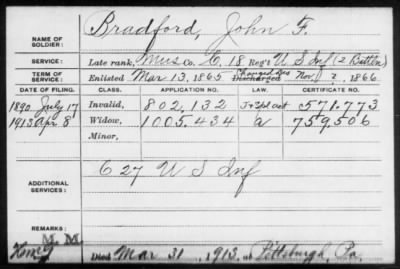 NAME OF SOLDIER: Bradford, John F.
SERVICE: Late rank, Mus Co. C, 18 Reg't U S Inf (2 Battln)
TERM OF SERVICE: Enlisted Mar 13, 1865 Discharged Nov. ?, 1866.
DATE OF FILING. CLASS. APPLICATION NO. LAW. CERTIFICATE NO.
1890 July 17 Invalid, 802.132 571.773
1913 Apr 8 Widow, 1005.434 a 759.506
Minor,
ADDITIONAL SERVICES: C 27 U S Inf
REMARKS: M. M.
Died Mar 31, 1913, at Pittsburgh, Pa.